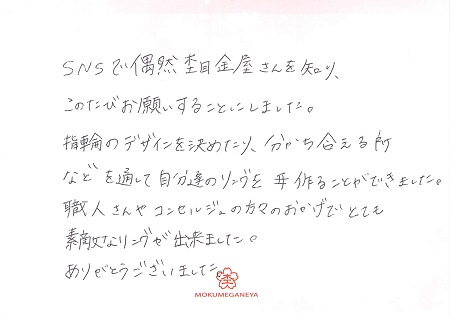 SNSで偶然杢目金屋さんを知り、
このたびお願いすることにしました。
指輪のデザインを決めたり、分かち合える所
などを通して自分達のリングを 作ることができました。
職人さんやコンセルジュの方々のおかげでとても
素敵なリングが出来ました。
ありがとうございました。
MOKUMEGANEYA